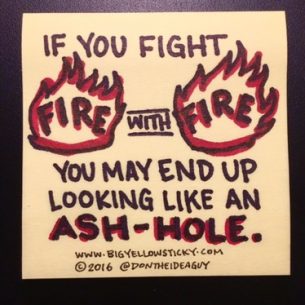 IF YOU FIGHT
FIRE WITH FIRE
YOU MAY END UP
LOOKING LIKE AN
ASH-HOLE.
WWW.BIGYELLOWSTICKY.COM
©2016 @DONTHEIDEAGUY